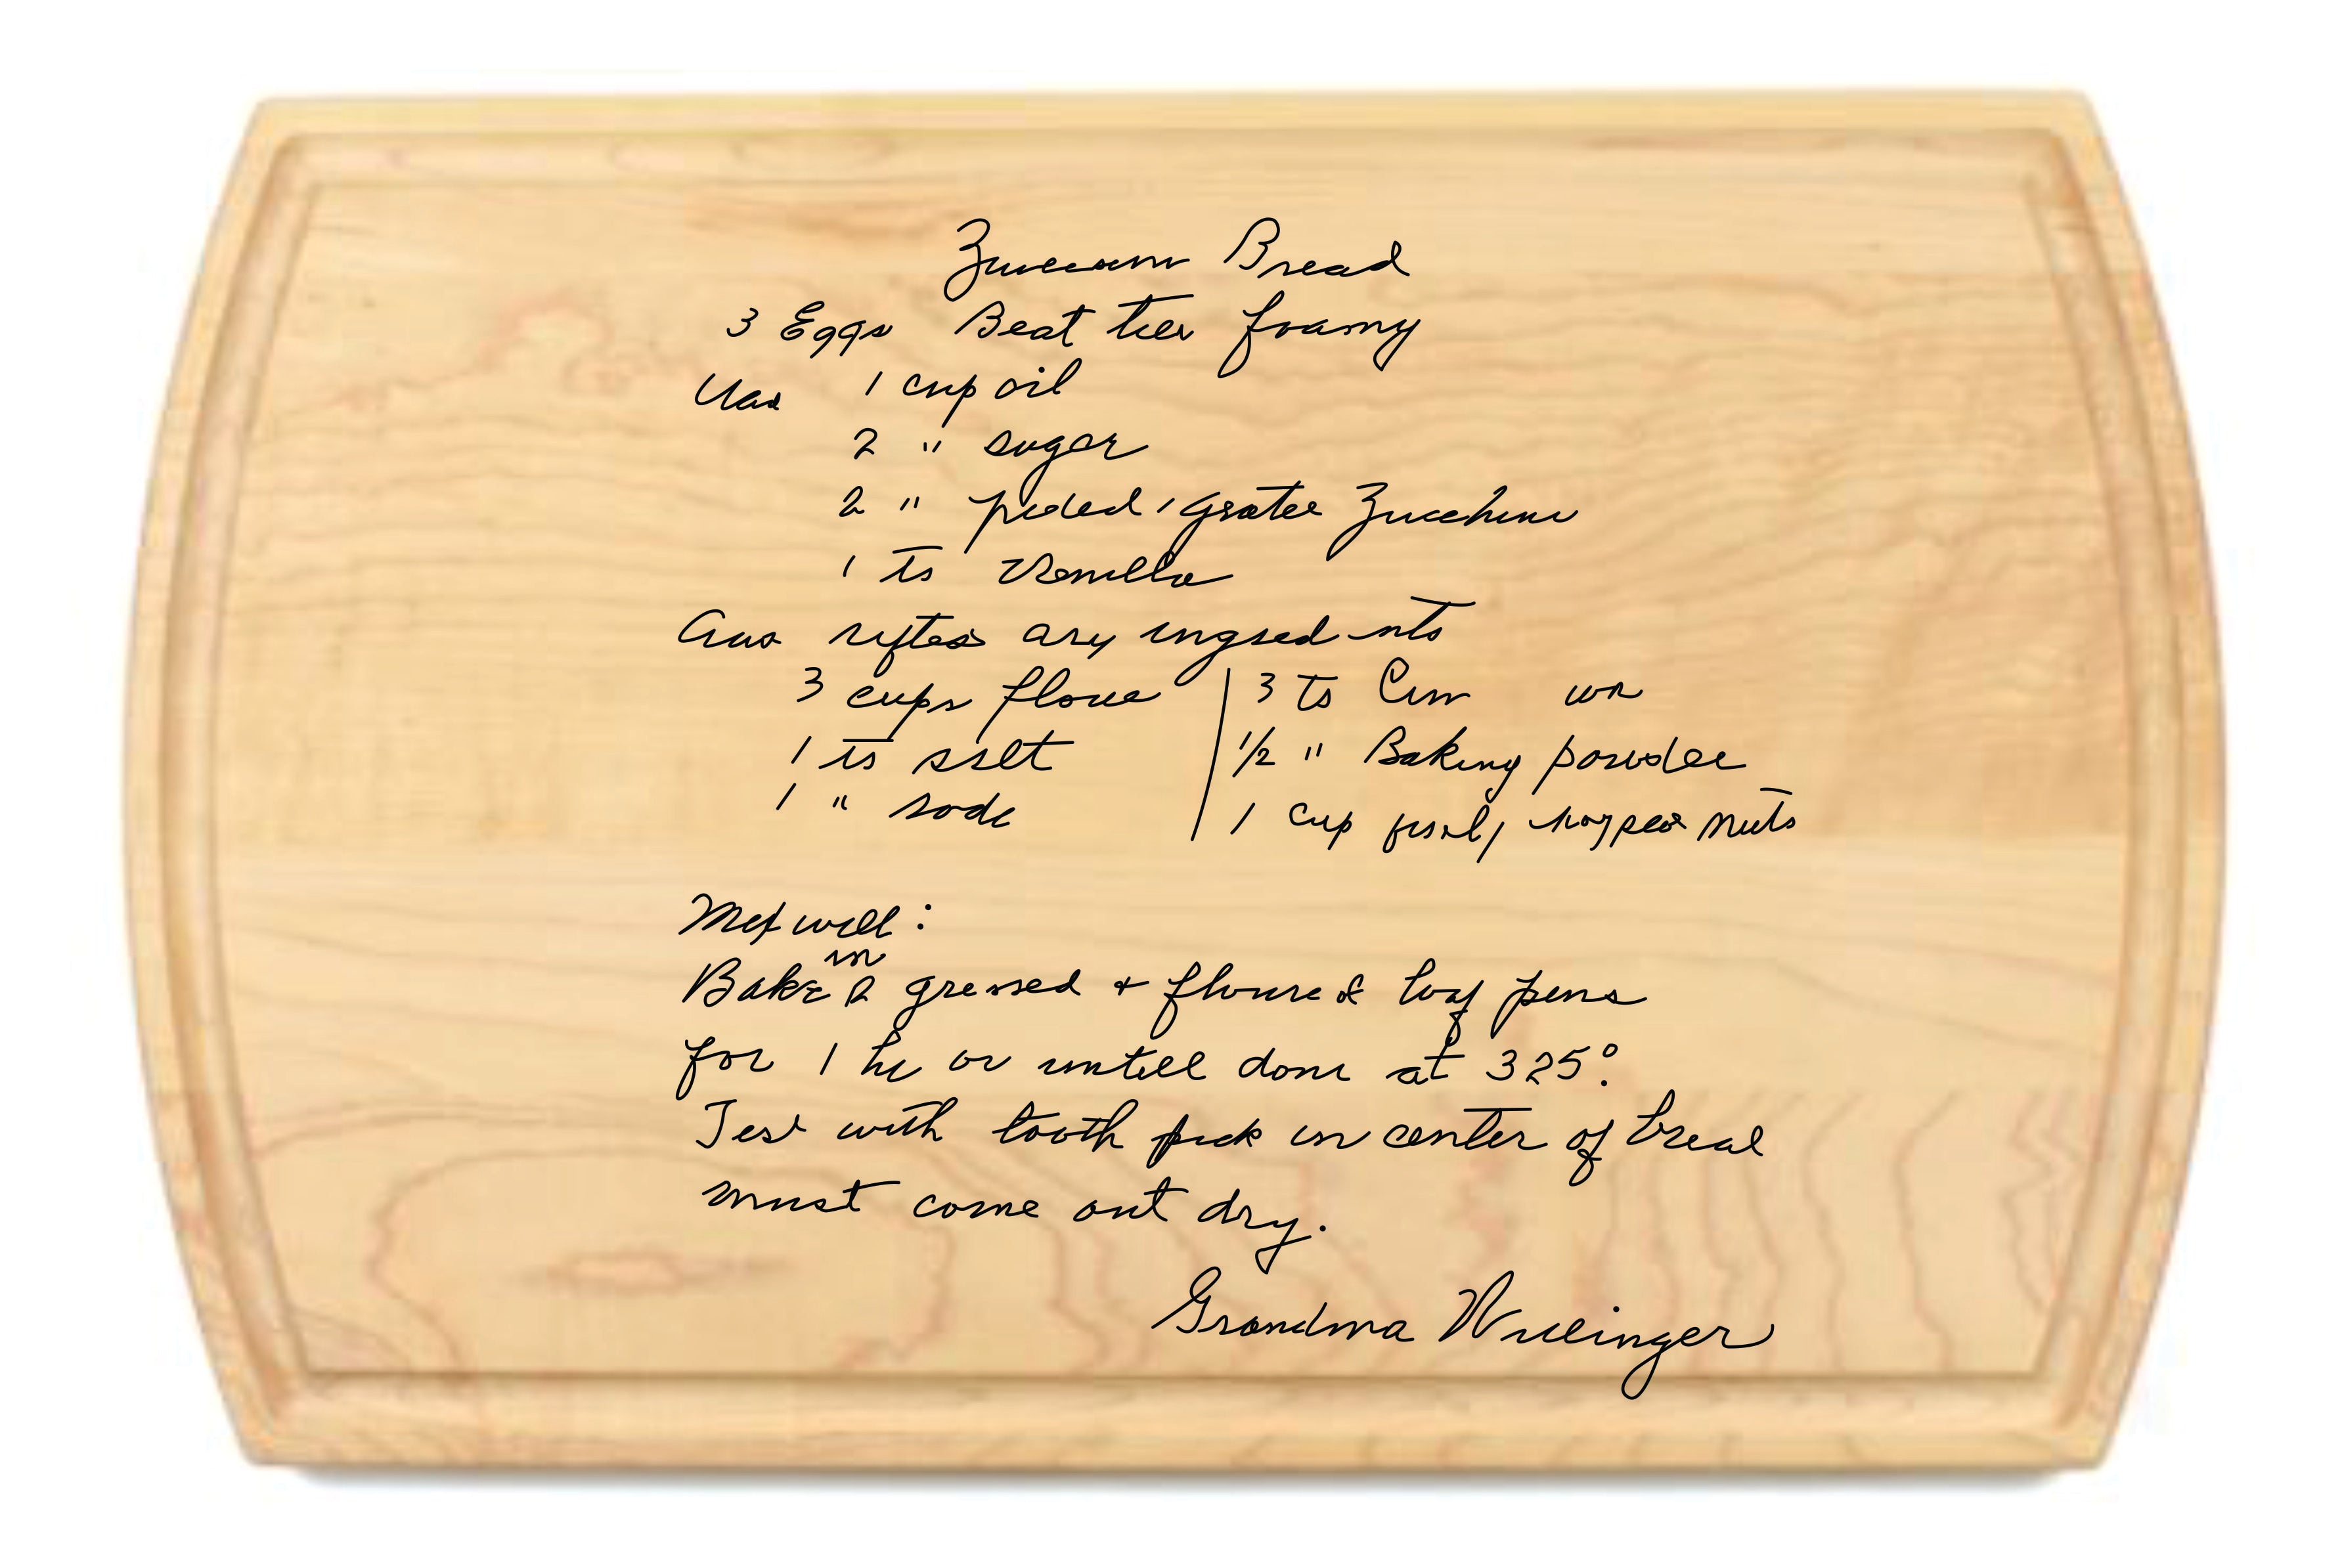 Zucchini Bread
3 Eggs Beat till foamy
Add 1 cup oil
2 " sugar
2 " peeled, grated Zucchini
1 ts Vanilla
Add sifted dry ingred nts
3 cups flour
1 ts salt
1 " soda
3 ts Cinn on
1/2 " Baking powder
1 cup finely chopped nuts
Mix well:
Bake in 2 greased + floured loaf pans
for 1 hr or untill done at 325°.
Test with tooth pick in center of bread
must come out dry.
Grandma